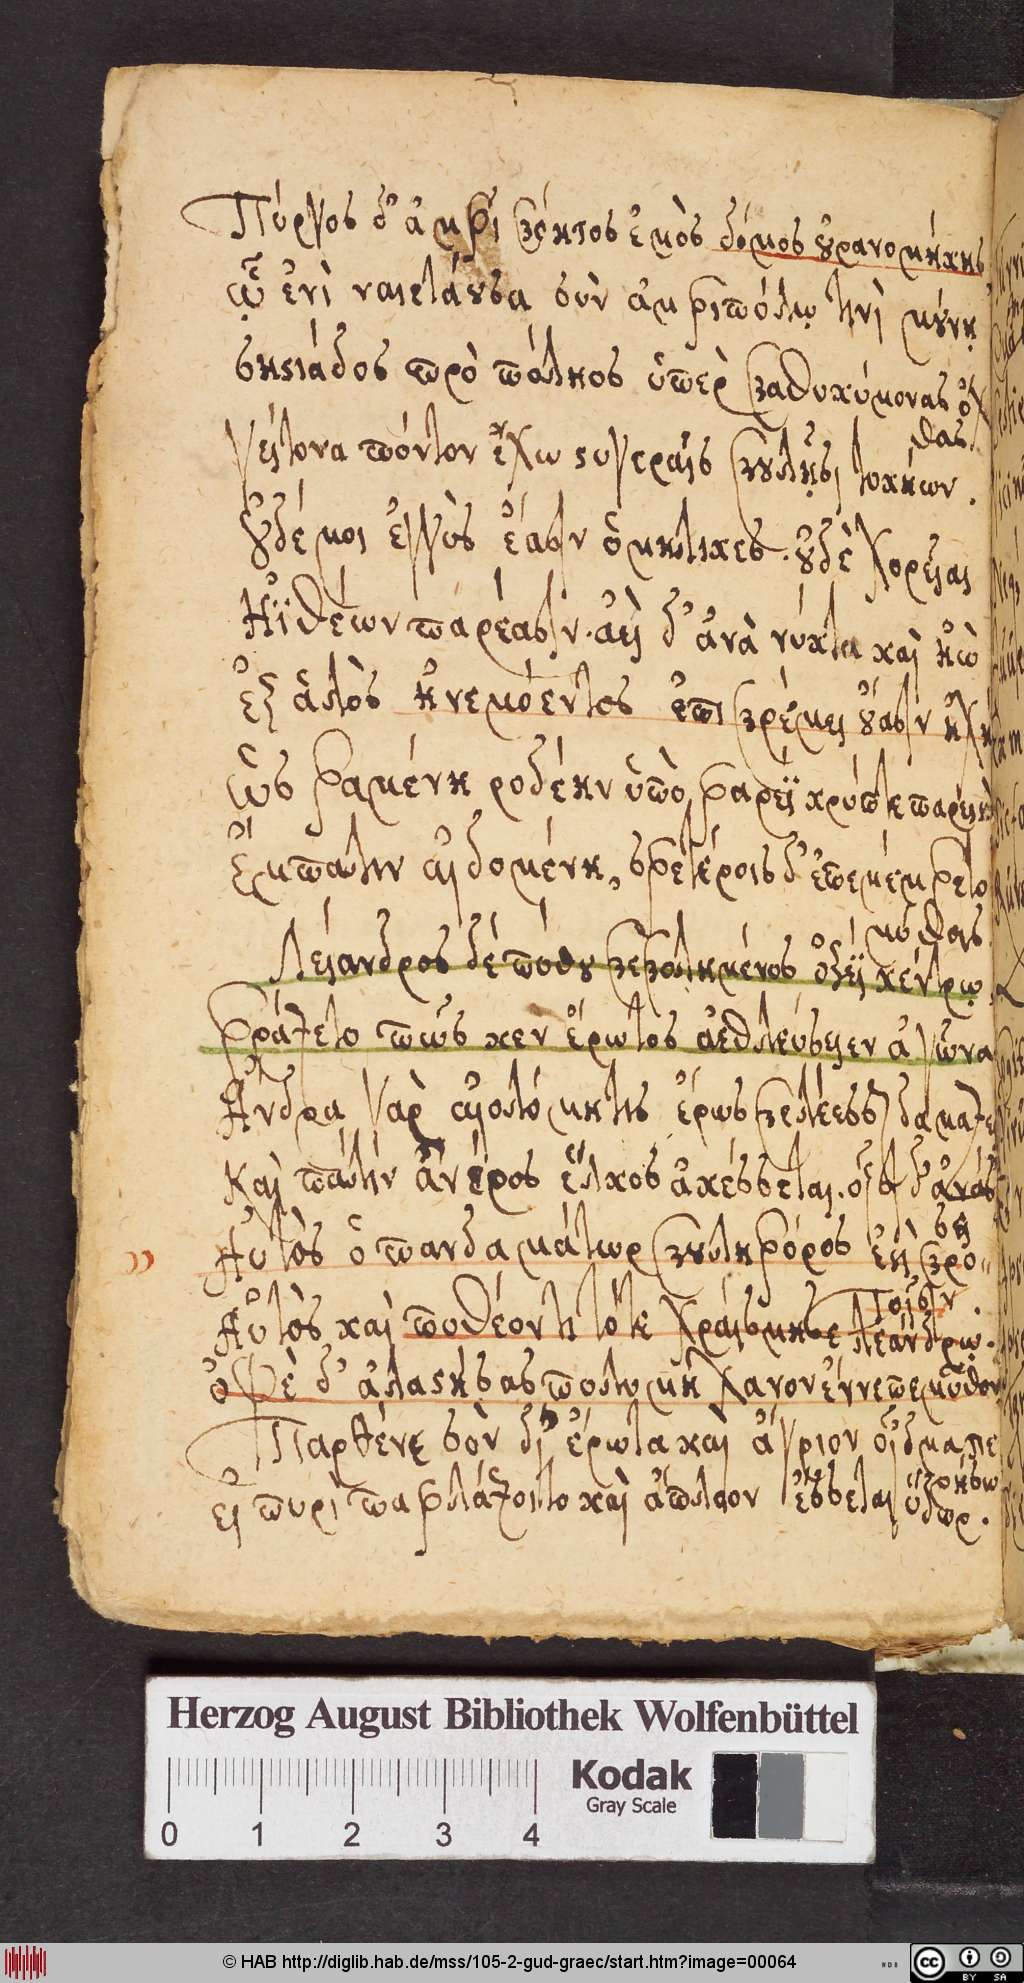 Πύργος δ' ἀμφιβόητος ἐμὸς δόμος οὐρανομήκης
ᾧ ἔνι ναιετάουσα σὺν ἀμφιπόλῳ τινὶ μούνῃ
σηστιάδος πρὸ πόληος ὑπὲρ βαθυκύμονας ὄχ
θας
γείτονα πόντον ἔχω στυγεραῖς βουλῇσι τοκήων.
οὐδέ μοι ἐγγὺς ἔασιν ὁμήλικες. οὐδὲ χορεῖαι
ἠϊθέων παρέασιν. αἰεὶ δ' ἀνὰ νύκτα καὶ ἠὼ
ἐξ ἁλὸς ἠνεμόεντος ἐπιβρέμει οὔασιν ἠχή
ὣς φαμένη ροδέην ὑπὸ φάρεϊ κρύπτε παρειὴν
ἔμπαλιν αἰδομένη, σφετέροις δ' ἐπεμέμφετο
μύθοις.
Λείανδρος δὲ πόθου βεβολημένος ὀξέϊ κέντρῳ.
φράζετο πῶς κεν ἔρωτος ἀεθλεύσειεν ἀγῶνα
Ἄνδρα γὰρ αἰολόμητις ἔρως βελέεσσι δαμάζει
καὶ πάλιν ἀνέρος ἕλκος ἀκέσσεται. οἷσι δ' ἀνάσ
σει
Αὐτὸς ὁ πανδαμάτωρ βουληφόρος ἐστὶ βρο-
τοῖσιν.
Αὐτὸς καὶ ποθέοντι τότε χραίσμησε λεάνδρῳ.
ὀψὲ δ' ἀλαστήσας πολυμήχανον ἔννεπε μῦθον
Παρθένε σὸν δι' ἔρωτα καὶ ἄγριον οἶδμα πε
ρήσω
εἰ πυρὶ παφλάζοιτο καὶ ἄπλοον ἔσσεται ὕδωρ.
Herzog August Bibliothek Wolfenbüttel
Kodak
Gray Scale
0 1 2 3 4
© HAB http://diglib.hab.de/mss/105-2-gud-graec/start.htm?image=00064
CC BY SA